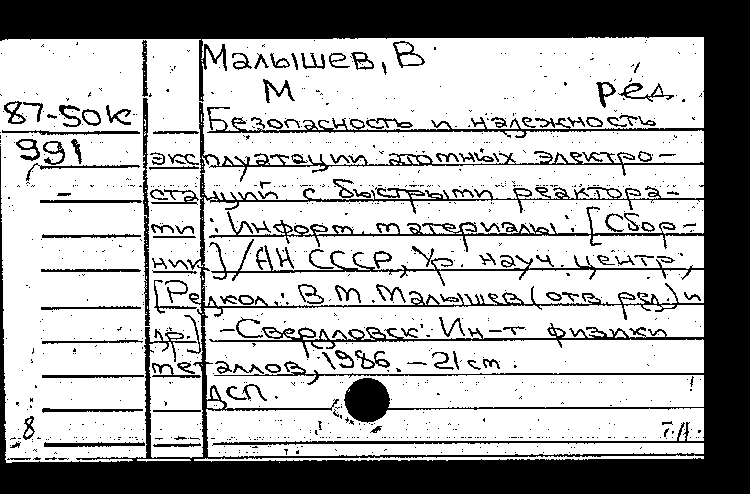 Малышев, В
М ред.
87-50к Безопасность и надежность
991 эксплуатации атомных электро-
станций с быстрыми реактора-
ми : Информ. материалы : [Сбор-
ник] / АН СССР, Ур. науч. центр;
[Редкол.: В.М. Малышев (отв. ред.) и
др.] - Свердловск: Ин-т физики
металлов, 1986. - 21 см.
ДСП.
8